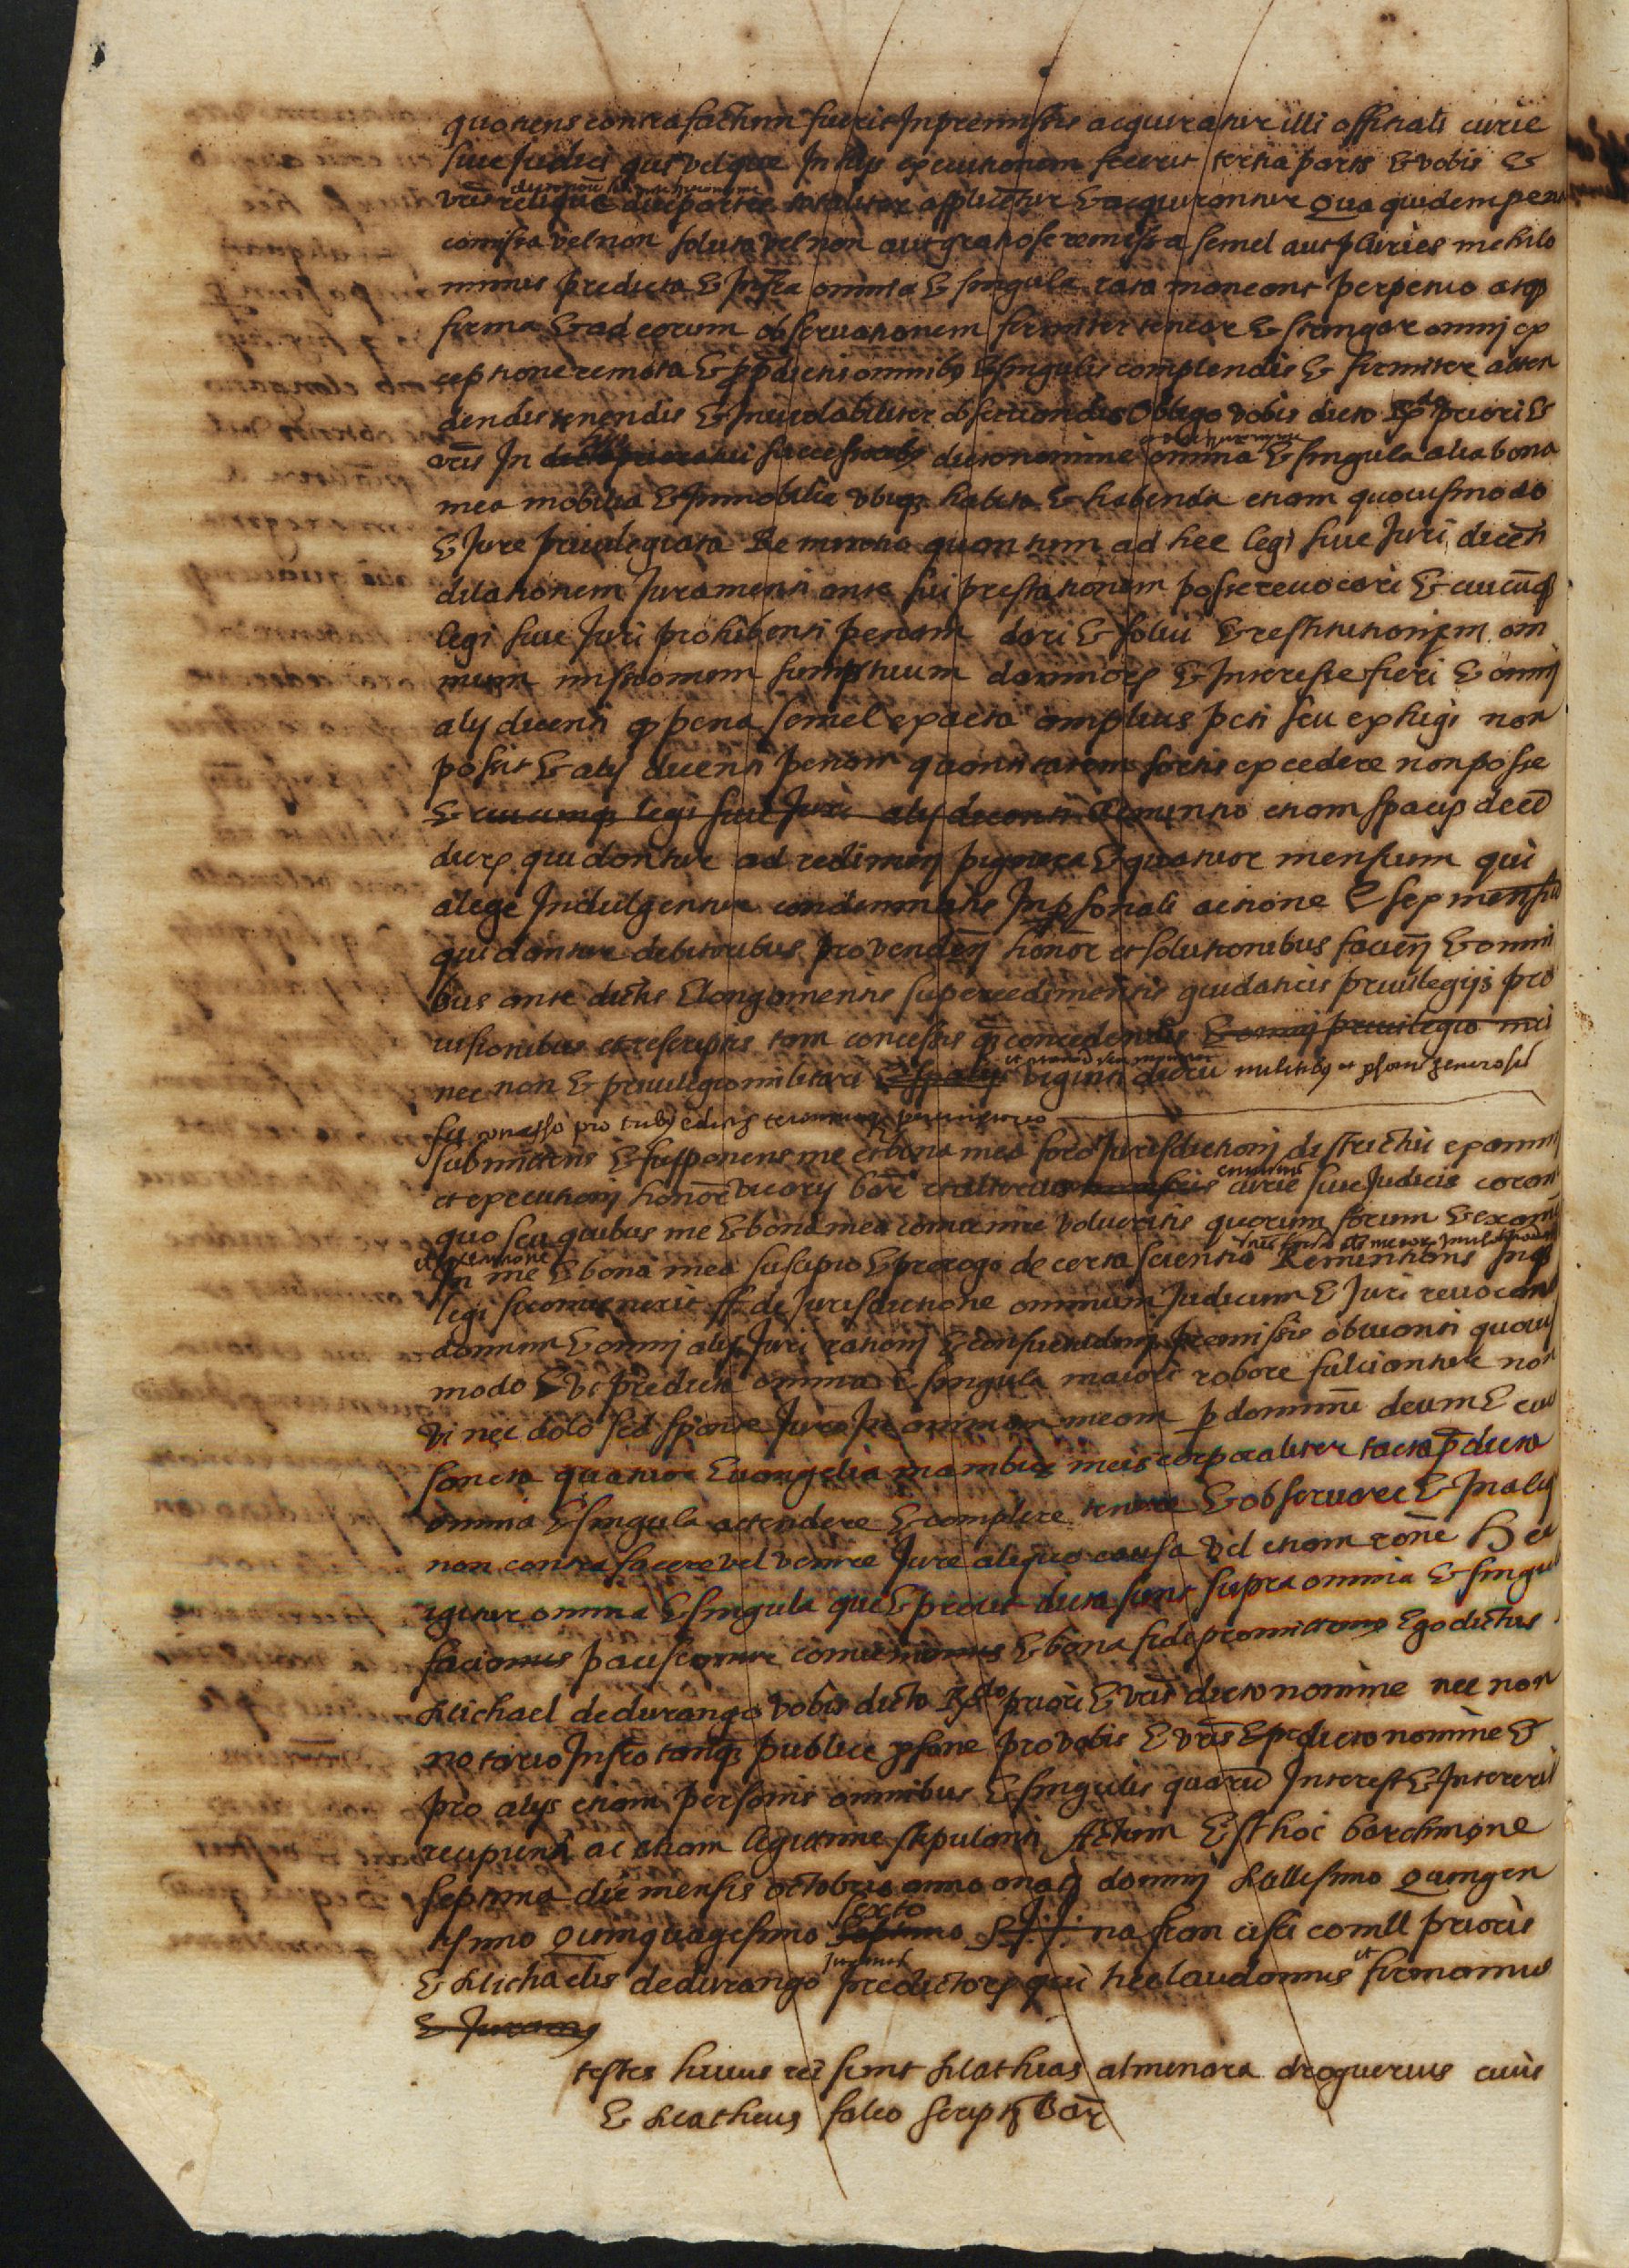 quotiens contrafactum fuerit In premissis acquiratur illi officiali curie
sive Judici qui vel que In hijs executionem fecerit tertia pars & vobis &
vris relique due partes totaliter applicentur & acquirantur Qua quidem pena
comissa vel non soluta vel non aut gratiose remissa semel aut pluries nichilo
minus predicta & Infra omnia & singula rata maneant perpetuo atq
firma & ad eorum observationem firmiter tenear & stringar omnj ex
ceptione remota & p pdictis omnibq & singulis complendis & firmiter atten
dendis tenendis & Inviolabiliter observandis Obligo vobis dicto Rdo priori &
vris In dicto prioratu successoribq dicto nomine omnia & singula alia bona
mea mobilia & Immobilia vbiq habita & habenda etiam quocusmodo
& Jure privilegiata Renuntio quantum ad hec legi sive Juri dicenti
dilationem Juramenti ante sui prestationem posse revocari & cuicuq
legi sive Juri prohibenti penam dari & solvi & restitutionem om
nium missionum sumptuum damnorq & Interesse fieri & omnj
alij dicenti q pena semel exacta amplius peti seu exhigi non
possit & alij dicenti penam quantitatem sortis excedere non posse
& cuicumq legi sive Juri alij dicenti Renuntio etiam spacijs dece
dierq qui dantur ad redimenj pignora & quatuor mensium qui
a lege Indulgentur condemnatis In psonali actione & sex mensiu
qui dantur debitoribus pro vendenj honor et solutionibus facienj & omni
bus ante dictis Elongamentis supersedimentis guidaticis privilegijs pro
visionibus et rescriptis tam concessis q concedendis & omnj privilegio mi
nec non & privilegio militari & spatijs viginti dieru militibq et psonis generosis
concesso pro
submittens & supponens me et bona mea foro Jurisdictionj districtui examinj
et executionj honor vicarij barc et alterius curie sive Judicis coram
quo seu quibus me & bona mea convenire volueritis quorum forum & exam
In me & bona mea suscipio & prorogo de certa scientia Renuntians Inq
legi si convenerit ff de Jurisdictione omnium Judicum & Juri revocan
domum & omnj alij Juri rationj & consuetudinj premissis obvianti quovis
modo & Vt predicta omnia & singula maiori robore fulciantur non
vi nec dolo sed sponte Juro In animam meam p dominu deum & eius
sancta quatuor Euangelia manibus meis corporaliter tacta pdicta
omnia & singula attendere & complere tenere & observare & In aliq
non contra facere vel venire Jure aliquo causa vel etiam rone Hec
igitur omnia & singula que & prout dicta sunt supra omnia & singula
facimus paciscimur convenimus & bona fide promittimq Ego dictus
Michael de durango vobis dicto Rdo priori & vris dicto nomine nec non
notario Infro tanq publice psone pro vobis & vris & pdicto nomine &
pro alijs etiam personis omnibus & singulis quaru Interest & Intererit
recipienti ac etiam legittime stipulanti Actum Est hoc barchinone
septima die mensis octobris anno a nati dominj Millesimo Quingen
tesimo Quinquagesimo septimo sexto S†† na francisci comll prioris
& Michaelis de durango predictorq qui hec laudamus et firmamus
& Juramq
testes huius rei sunt Mathias almenara droguerius civis
& Matheus falco scriptq Barc